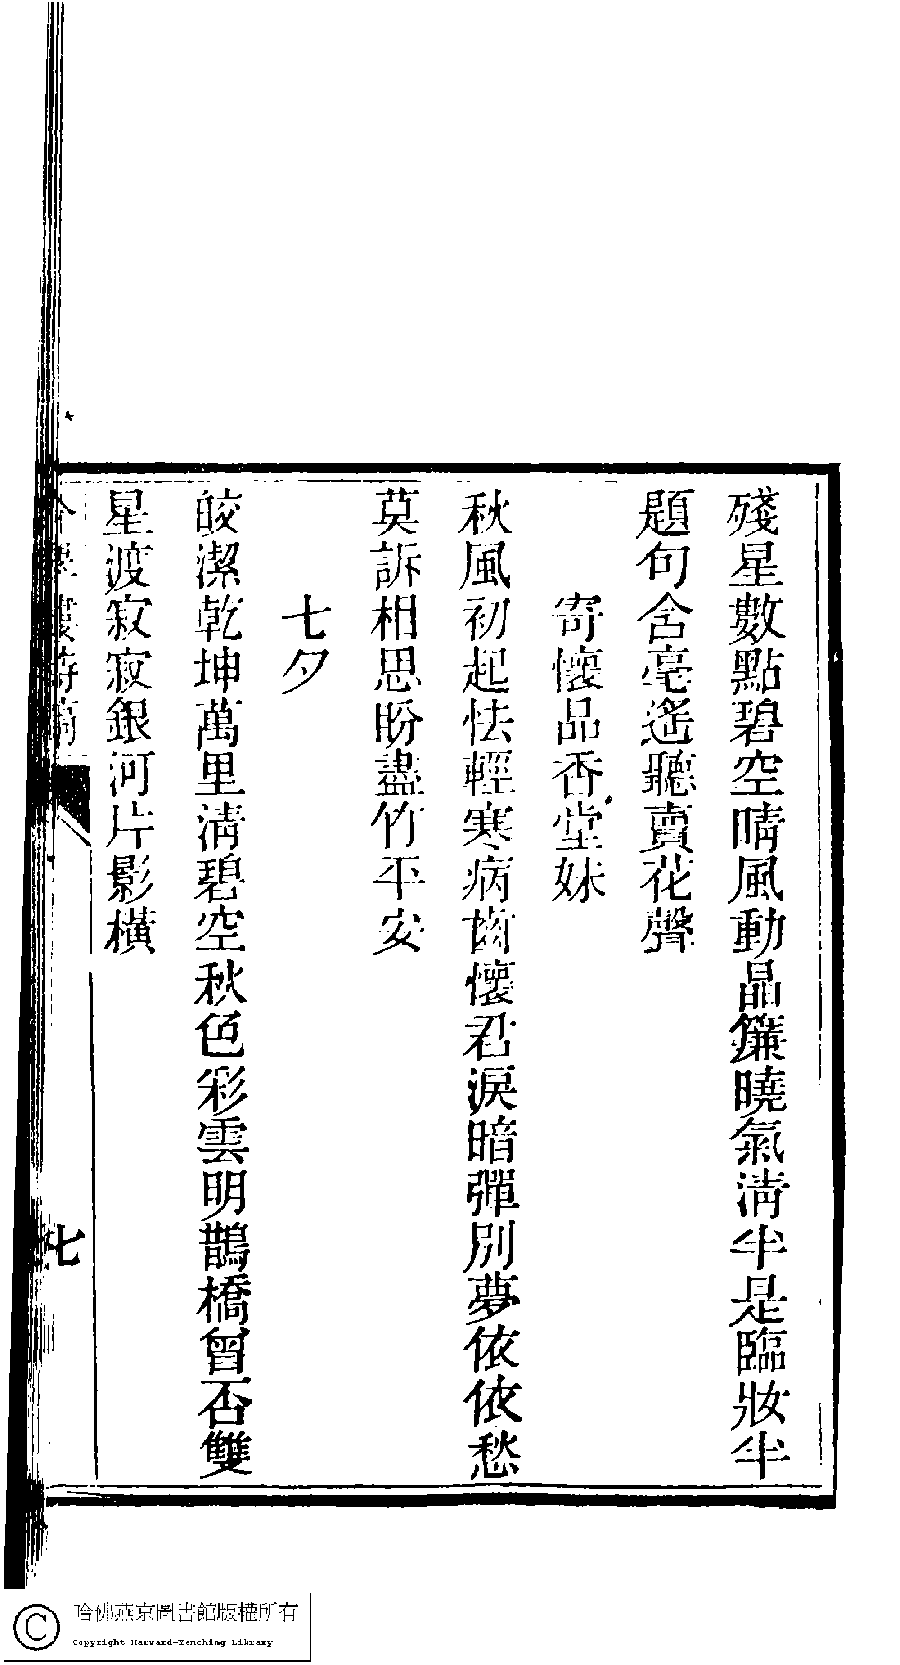 殘星數點碧空晴風動晶簾曉氣清半是臨妝半
題句含毫遙聽賣花聲
寄懷品香堂妹
秋風初起怯輕寒病齒懷君淚暗彈別夢依依愁
莫訴相思盼盡竹平安
七夕
皎潔乾坤萬里清碧空秋色彩雲明鵲橋曾否雙
星渡寂寂銀河片影橫
七
哈佛燕京圖書館版權所有
Copyright Harvard-Yenching Library